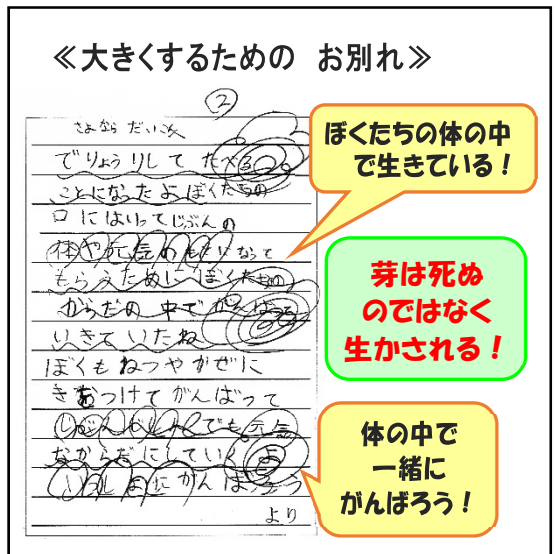 ≪大きくするための お別れ≫
②
さよなら だいこん
でりょうりして たべる
ことになったよぼくたちの
口にはいってじぶんの
体や元気のもとになって
もらうためにぼくたちの
からだの中でがんばって
いきていたね
ぼくもねつやかぜに
きおつけてがんばって
でも元気
なからだにしていくよ
いっしょにがんばろう
より
ぼくたちの体の中
で生きている！
芽は死ぬ
のではなく
生かされる！
体の中で
一緒に
がんばろう！